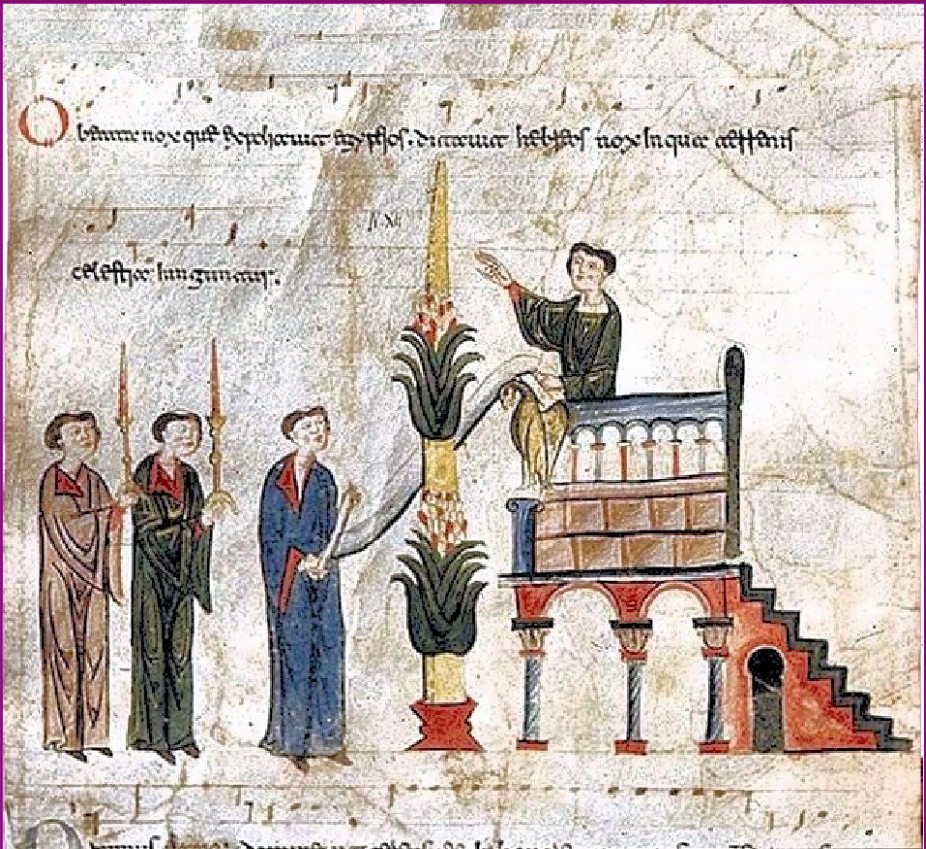 O beata nox quę expoliauit egyptios. ditauit hebreos nox In qua terrenis
celestia Iunguntur.